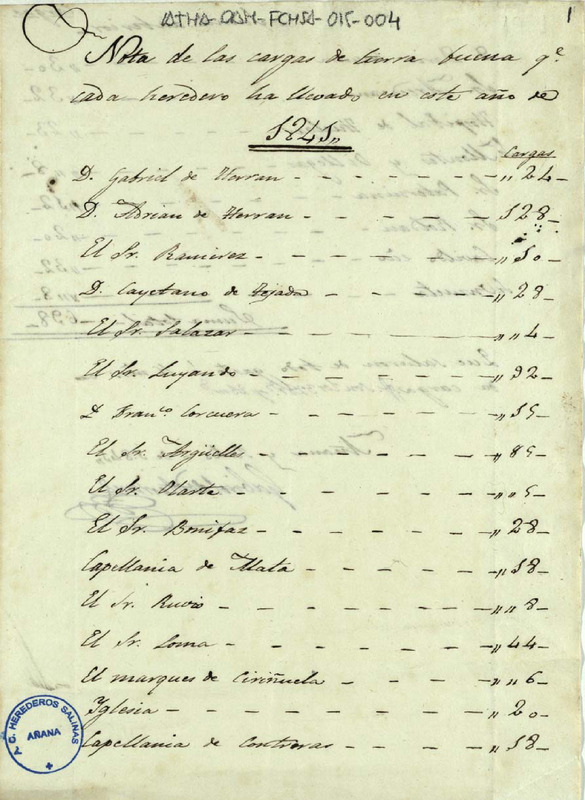 ATHA-DAH-FCHSA-015-004
1
Nota de las cargas de tierra buena qe.
cada heredero ha llevado en este año de
1841,,
Cargas
D. Gabriel de Herran - - - - - ,, 24-
D. Adrian de Herran - - - - - 128-
El Sr. Ramirez - - - - - - ,, 50-
D. Cayetano de Tejada - - - - - ,, 28-
El Sr. Salazar - - - - - - ,, ,, 4-
El Sr. Luyando - - - - - - ,, 32-
D. Franco. Corcuera - - - - - ,, 15-
El Sr. Argüelles - - - - - - ,, 85-
El Sr. Olarte - - - - - - ,, ,, 5-
El Sr. Bonifaz - - - - - - ,, 28-
Capellania de Mata - - - - - ,, 18-
El Sr. Ruvio - - - - - - ,, ,, 8-
El Sr. Loma - - - - - - ,, 44-
El marques de Ciriñuela - - - - ,, ,, 6-
Yglesia - - - - - - - ,, 20-
Capellania de Contreras - - - - ,, 18-
C. HEREDEROS SALINAS
AÑANA